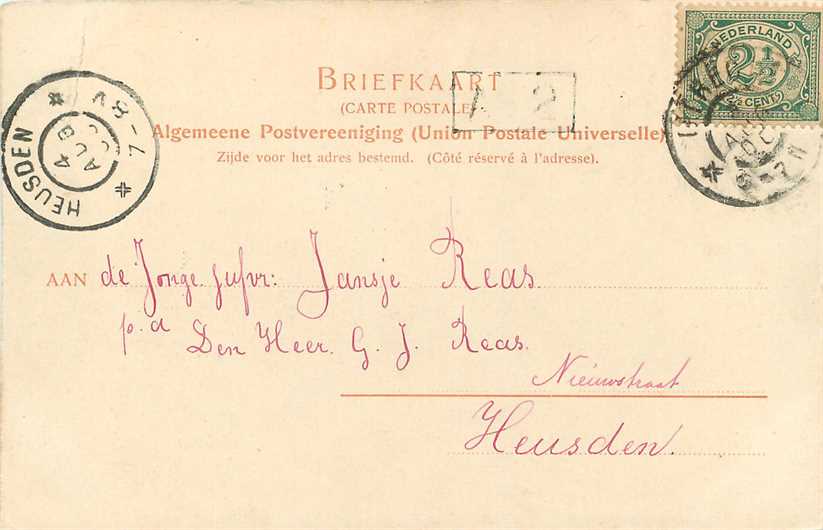 BRIEFKAART
(CARTE POSTALE)
Algemeene Postvereeniging (Union Postale Universelle)
Zijde voor het adres bestemd. (Côté réservé à l'adresse).
NEDERLAND
2½
2½ CENT
HEUSDEN
4 AUG
7-8V
AAN de Jonge Jufvr: Jansje Reas.
p. a Den Heer. G. J. Reas.
Nieuwstraat
Heusden.